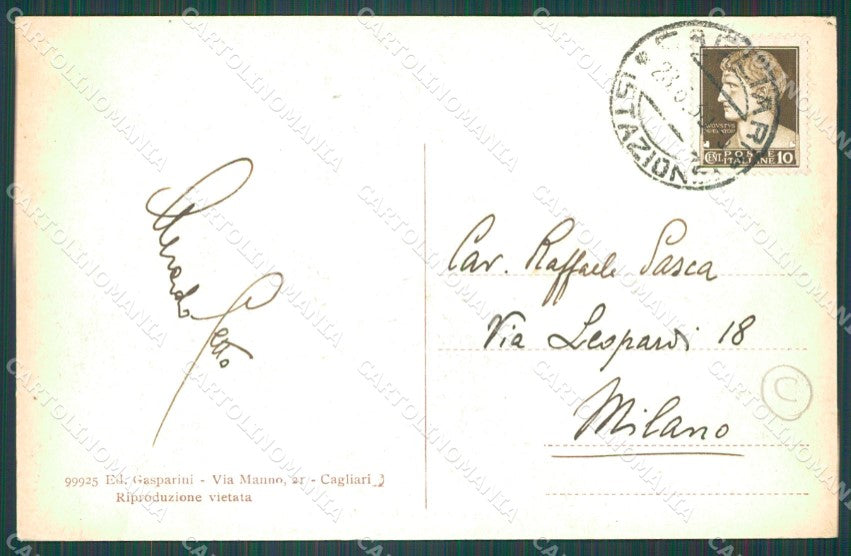 CARTOLINOMANIA
CAGLIARI
ISTAZIONI
AVGVSTVS
CENT. POSTE ITALIANE 10
Cav. Raffaele Pasca
Via Leopardi 18
Milano
C
99925 Ed. Gasparini - Via Manno, 21 - Cagliari
Riproduzione vietata